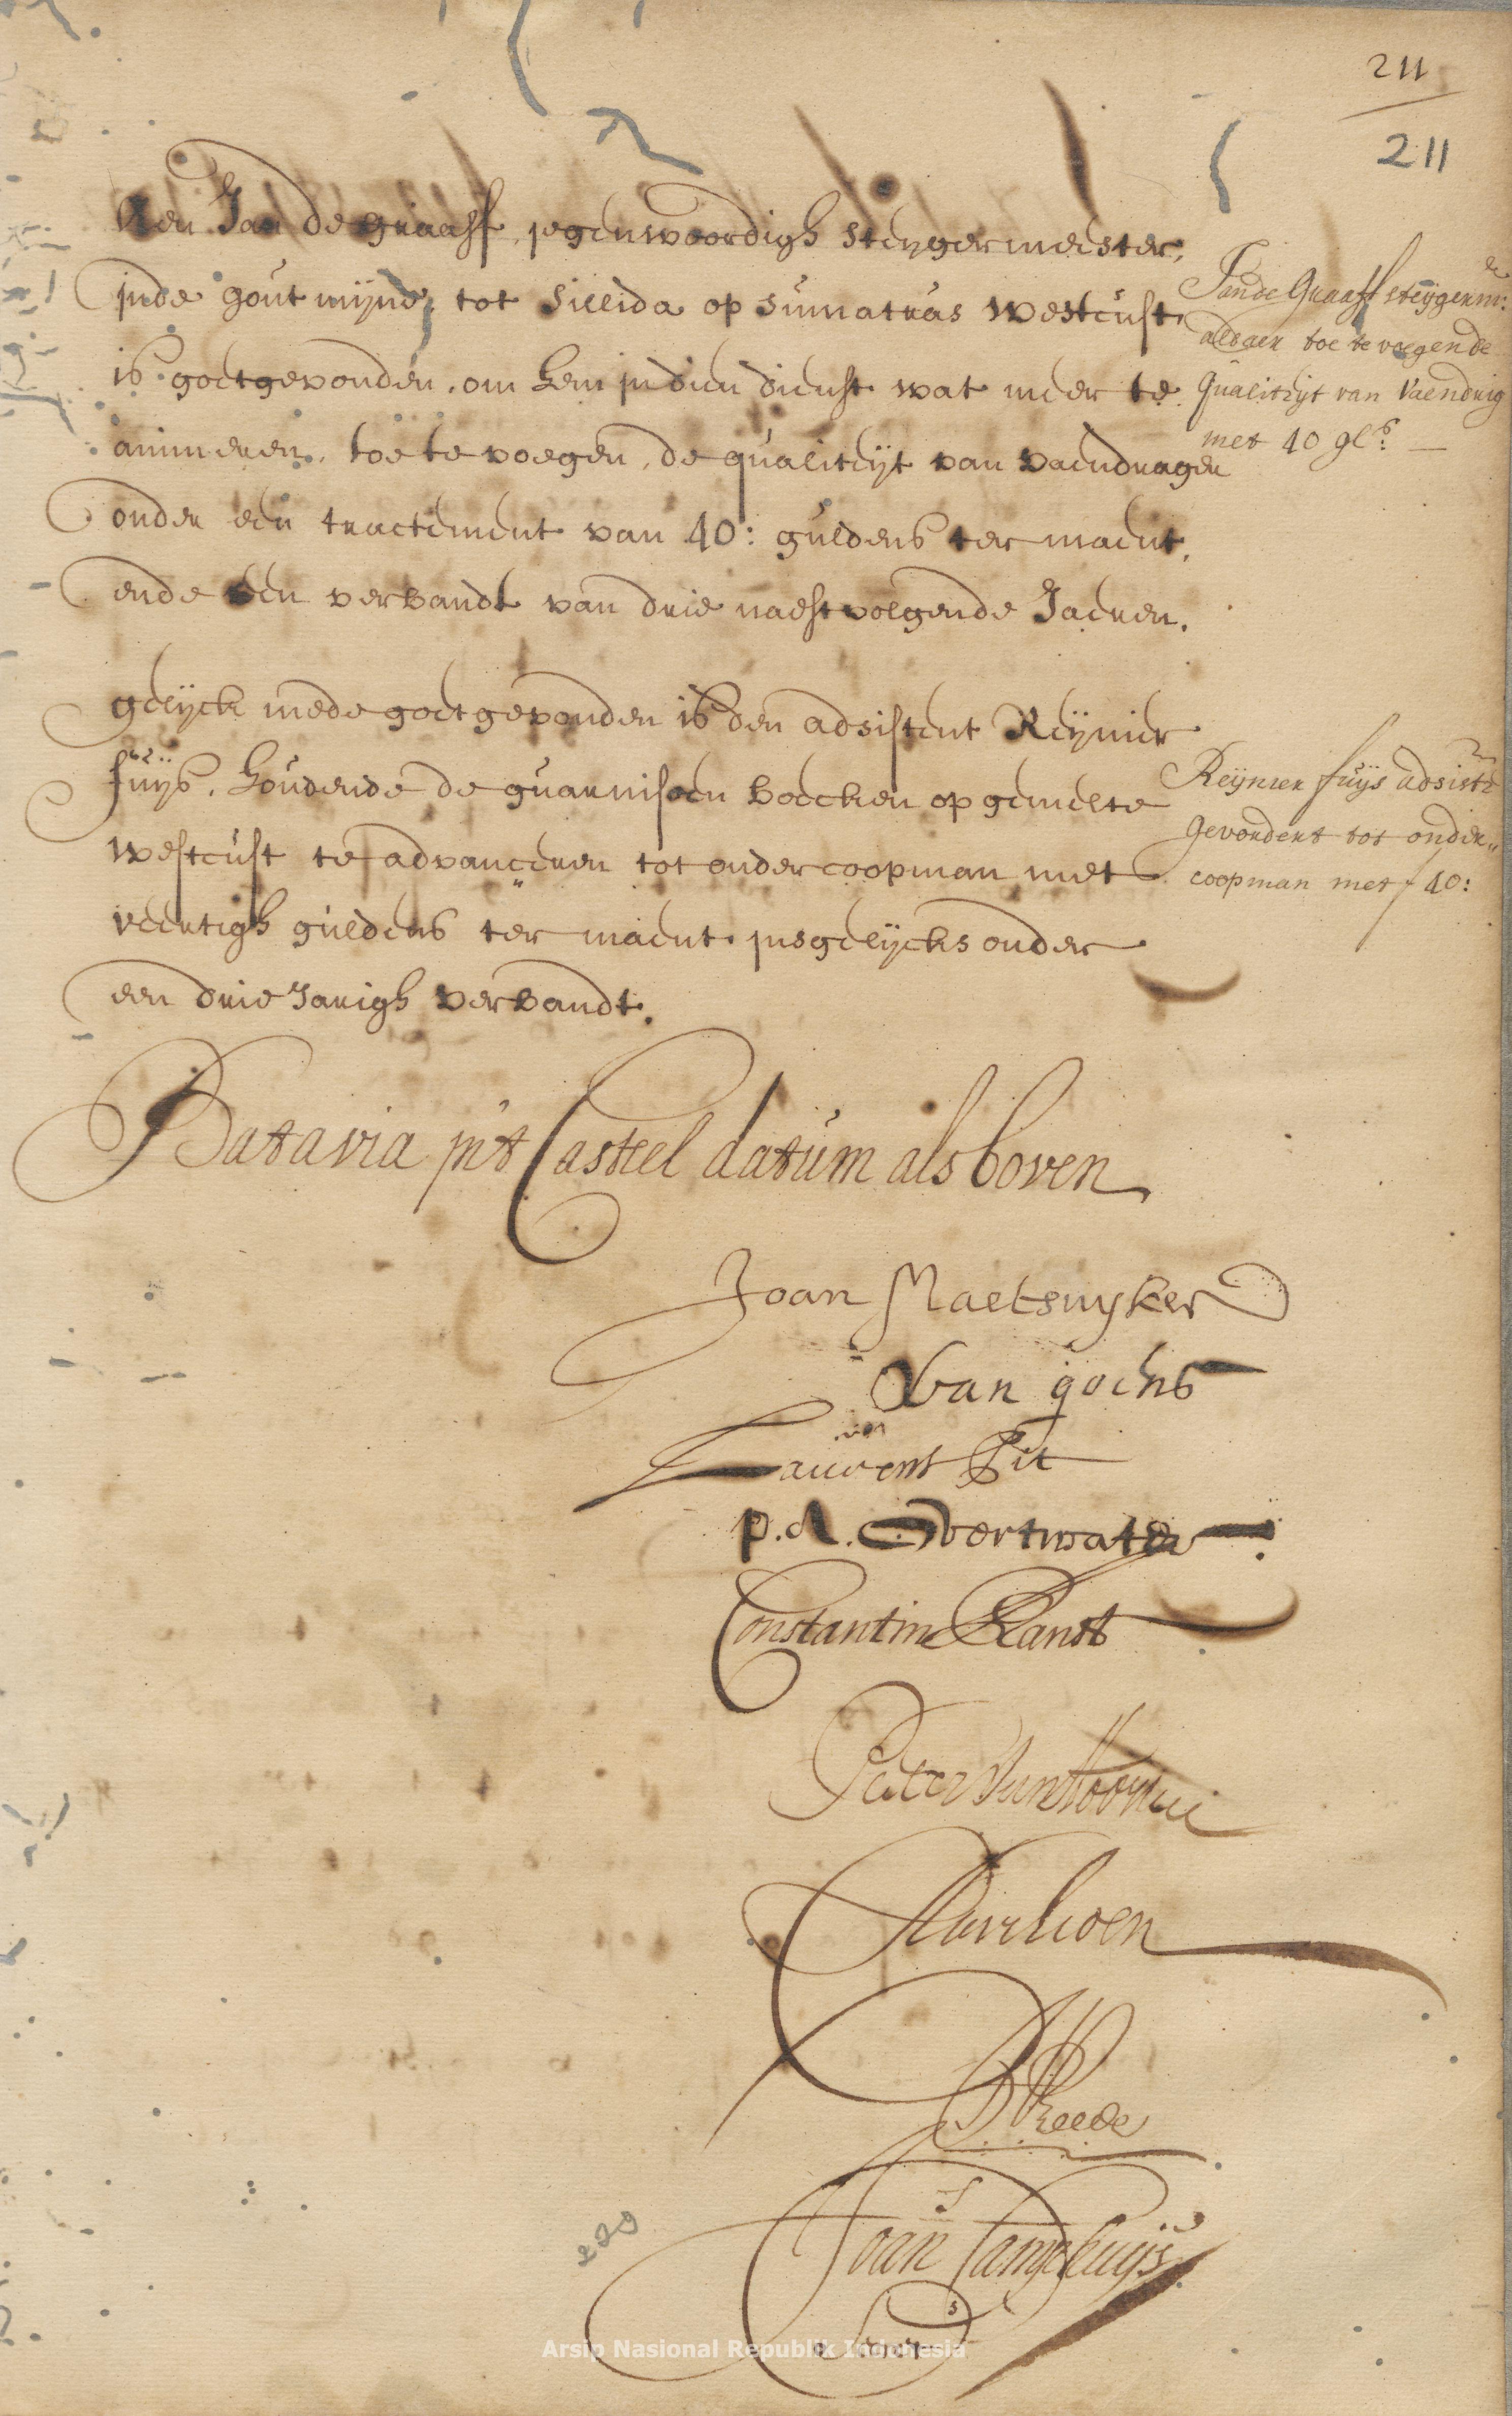 211
211
Aen Jan de graaff, jegenwoordigh steygermeester,
inde goutmijne, tot Sillida op Sumatras westcust,
is goetgevonden, om hem in dien dienst wat meer te
animeren, toe te voegen, de qualiteijt van vaendrager
onder een tractement van 40: guldens ter maent,
ende een verbandt van drie naestvolgende Jaeren.
Jan de Graaff steijgermr:
aldaer toe te voegende
qualiteijt van Vaendrig
met 40 gls. —
gelijck mede goetgevonden is den adsistent Reijnier
fuijs, houdende de guarnisoen boecken op gemelte
westcust te advanceren tot ondercoopman met
veertigh guldens ter maent, insgelijcks onder
een drie Jarigh verbandt.
Reijnier fuijs adsistt
gevordert tot onder„
coopman met f 40:
Batavia in't Casteel datum als boven
Joan Maetsuyker
van goens
Laurens Pit
p.A. Overtwater
Constantin Ranst
Pieter van Hoorn
Reede
Joan Camphuijs
Secrts
229
Arsip Nasional Republik Indonesia